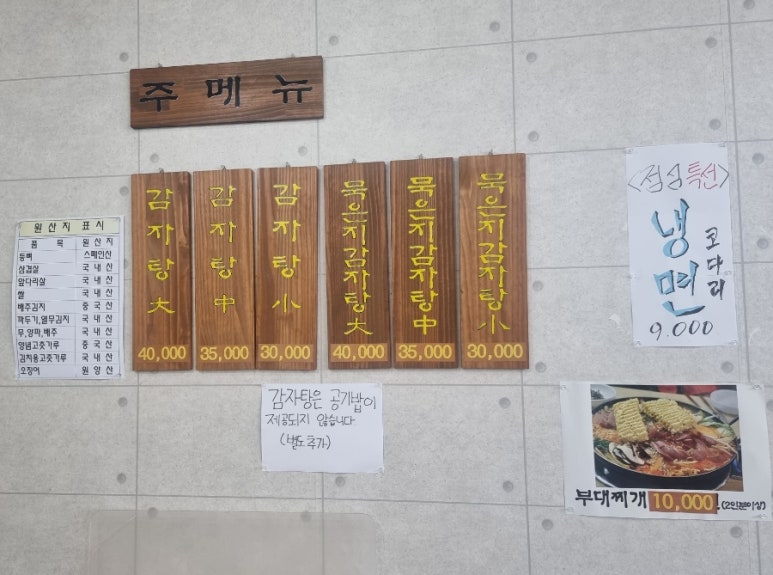 주메뉴
감자탕 大
40,000
감자탕 中
35,000
감자탕 小
30,000
묵은지감자탕 大
40,000
묵은지감자탕 中
35,000
묵은지감자탕 小
30,000
원산지 표시
품 목 원산지
등뼈 스페인산
삼겹살 국내산
앞다리살 국내산
쌀 국내산
배추김치 중국산
깍두기,열무김치 국내산
무,양파,배추 국내산
양념고춧가루 중국산
김치용고춧가루 국내산
오징어 원양산
감자탕은 공기밥이
제공되지 않습니다.
(별도추가)
<점심특선>
코다리
냉면
9.000
부대찌개 10,000.(2인분이상)